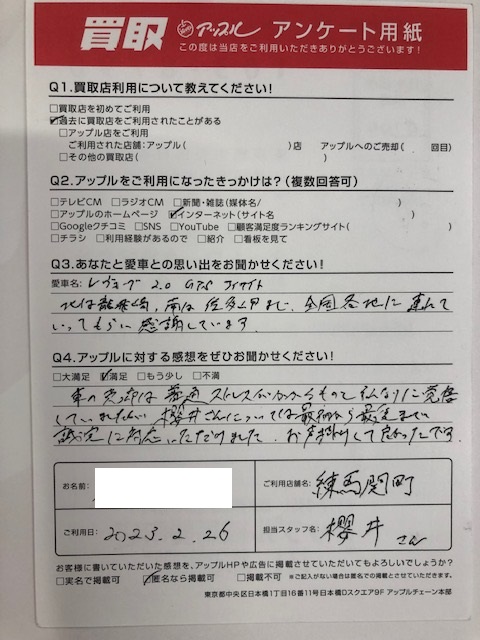 買取 アップル アンケート用紙
この度は当店をご利用いただきありがとうございます!
Q1.買取店利用について教えてください!
□買取店を初めてご利用
☑過去に買取店をご利用されたことがある
□アップル店をご利用
ご利用された店舗:アップル( )店 アップルへのご売却( 回目)
□その他の買取店( )
Q2.アップルをご利用になったきっかけは?(複数回答可)
□テレビCM □ラジオCM □新聞・雑誌(媒体名/ )
□アップルのホームページ ☑インターネット(サイト名 )
□Googleクチコミ □SNS □YouTube □顧客満足度ランキングサイト( )
□チラシ □利用経験があるので □紹介 □看板を見て
Q3.あなたと愛車との思い出をお聞かせください!
愛車名: レヴォーグ 2.0 GTS アイサイト
北は龍飛崎、南は佐多岬まで、全国各地に連れて
いってもらい感謝しています。
Q4.アップルに対する感想をぜひお聞かせください!
□大満足 ☑満足 □もう少し □不満
車の売却は普通ストレスがかかるものとそれなりに覚悟
していましたが、櫻井さんについては最初から最後まで
誠実に対応いただけました。お声掛けして良かったです。
お名前:
ご利用店舗名: 練馬関町
ご利用日: 2023.2.26
担当スタッフ名: 櫻井さん
お客様に書いていただいた感想を、アップルHPや広告に掲載させていただいてもよろしいでしょうか?
□実名で掲載可 ☑匿名なら掲載可 □掲載不可 ※ご記入がない場合は匿名での掲載とさせていただきます。
東京都中央区日本橋1丁目16番11号日本橋Dスクエア9F アップルチェーン本部